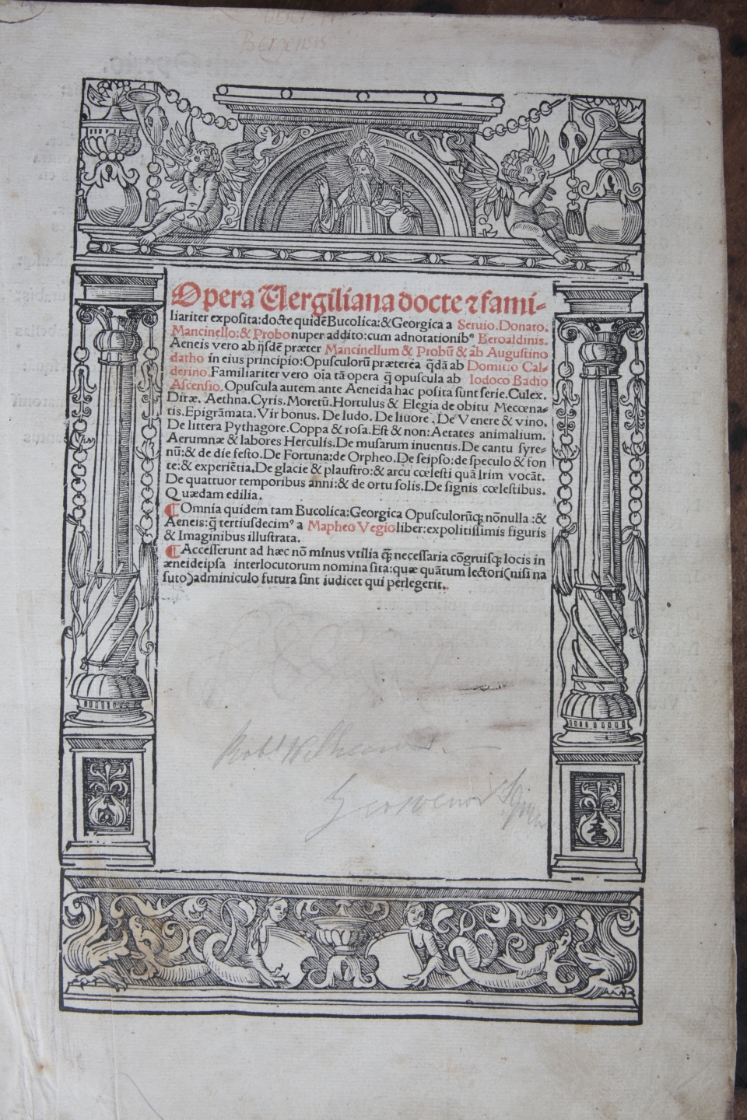 Opera Vergiliana docte ⁊ fami-
liariter exposita: docte quidē Bucolica: & Georgica a Seruio. Donato.
Mancinello: & Probo nuper addito: cum adnotationibꝰ Beroaldinis.
Aeneis vero ab ijsdē præter Mancinellum & Probū & ab Augustino
datho in eius principio: Opusculorū præterea q̄dā ab Domitio Cal-
derino. Familiariter vero oīa tā opera q̄ opuscula ab Iodoco Badio
Ascensio. Opuscula autem ante Aeneida hac posita sunt serie. Culex.
Diræ. Aethna. Cyris. Moretū. Hortulus & Elegia de obitu Mecœna-
tis. Epigrāmata. Vir bonus. De ludo. De liuore. De Venere & vino.
De littera Pythagore. Coppa & rosa. Est & non: Aetates animalium.
Aerumnæ & labores Herculis. De musarum inuentis. De cantu syre-
nū: & de die festo. De Fortuna: de Orpheo. De seipso: de speculo & fon
te: & experiētia. De glacie & plaustro: & arcu cœlesti quā Irim vocāt.
De quattuor temporibus anni: & de ortu solis. De signis cœlestibus.
Quædam edilia.
¶ Omnia quidem tam Bucolica: Georgica Opusculorūqꝫ nōnulla: &
Aeneis: q̄ tertiusdecimꝰ a Mapheo Vegio liber: expolitissimis figuris
& Imaginibus illustrata.
¶ Accesserunt ad hæc nō minus vtilia q̄ necessaria cōgruisqꝫ locis in
æneide ipsa interlocutorum nomina sita: quæ quātum lectori (nisi na
suto) adminiculo futura sint iudicet qui perlegerit.